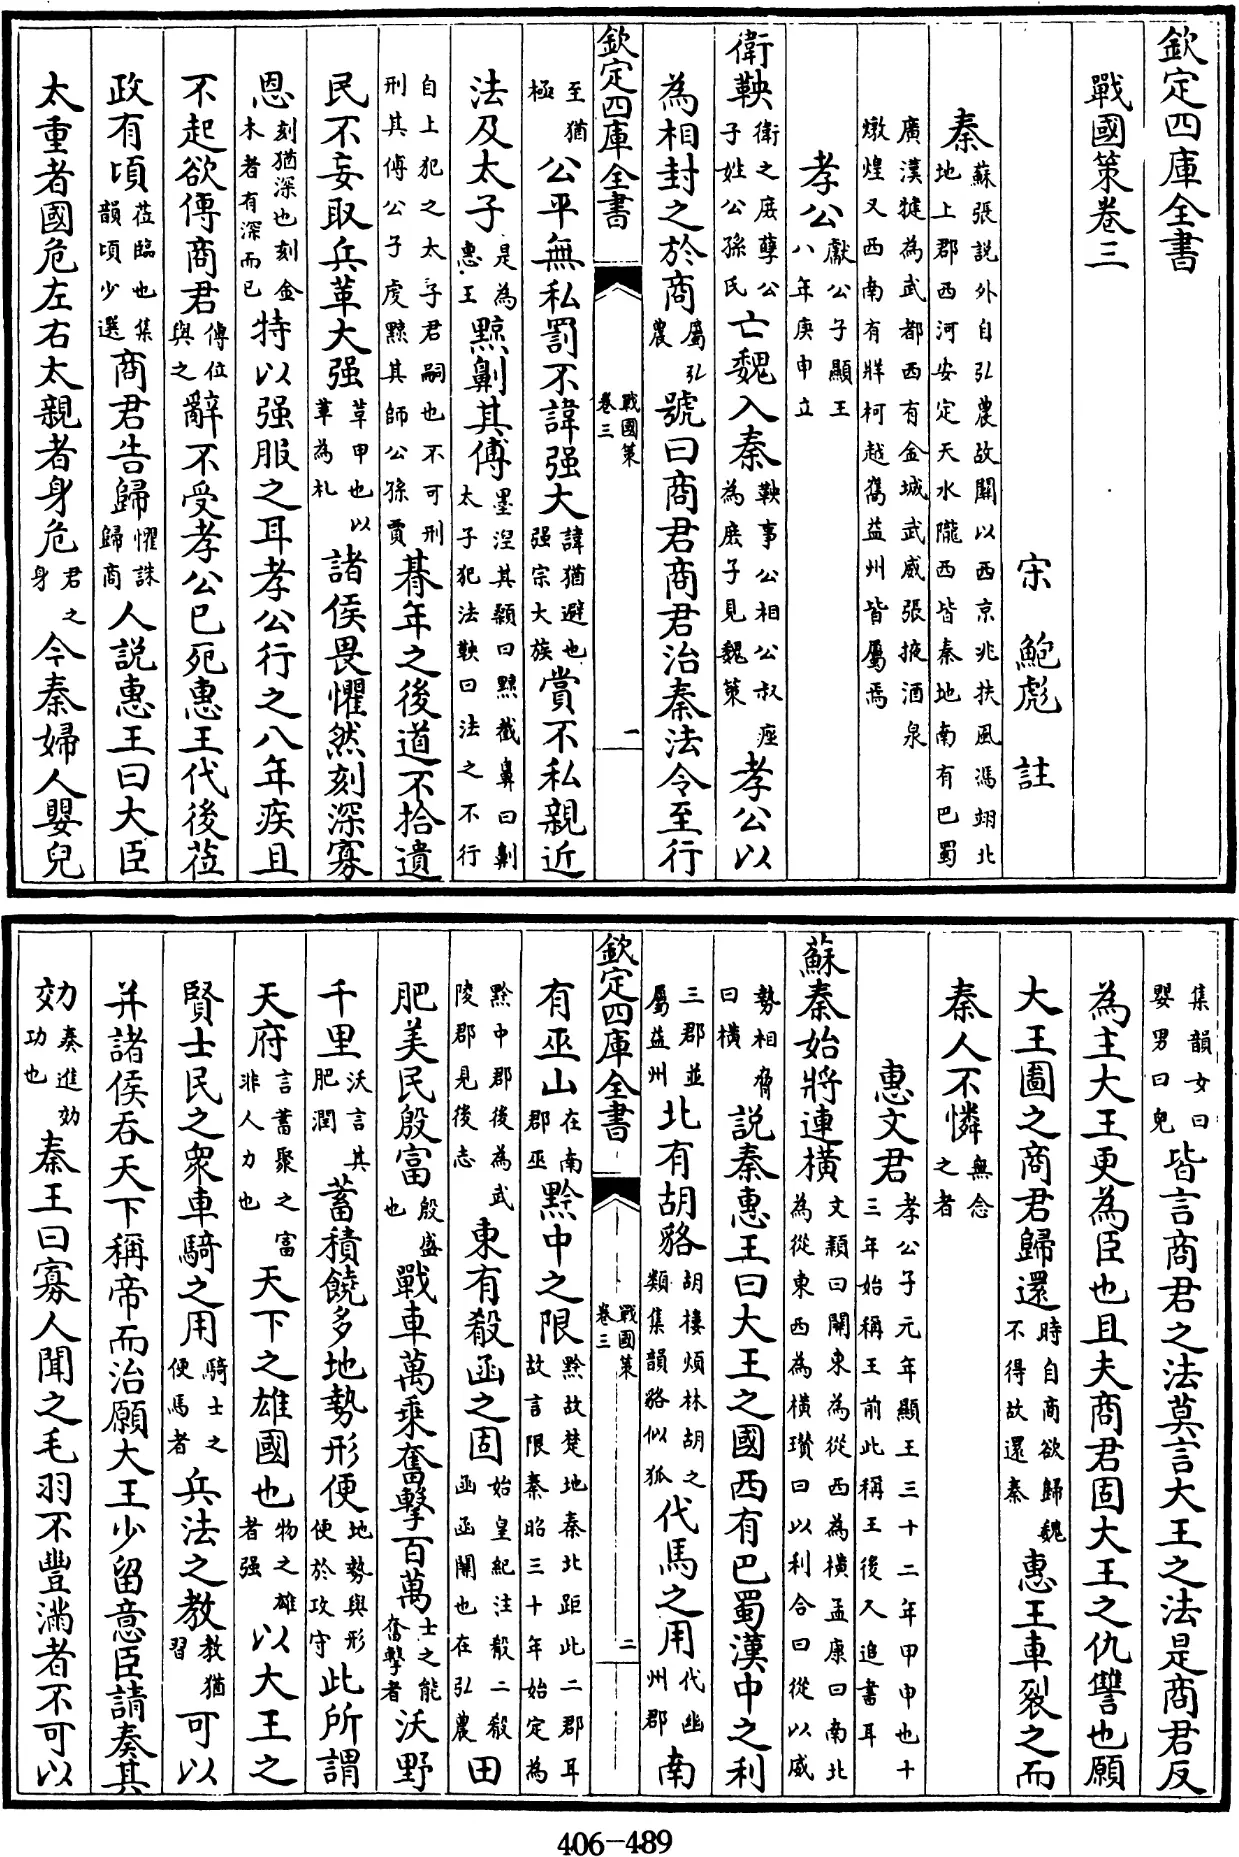 欽定四庫全書
戰國策卷三
宋　鮑彪　註
秦蘇張説外自弘農故關以西京兆扶風馮翊北地上郡西河安定天水隴西皆秦地南有巴蜀
廣漢犍為武都西有金城武威張掖酒泉燉煌又西南有牂柯越嶲益州皆屬焉
孝公獻公子顯王八年庚申立
衛鞅衛之庶孽公子姓公孫氏亡魏入秦鞅事公相公叔痤為庶子見魏策孝公以
為相封之於商屬弘農號曰商君商君治秦法令至行
欽定四庫全書　戰國策卷三　一
至猶極公平無私罰不諱强大諱猶避也强宗大族賞不私親近
法及太子是為惠王黥劓其傅墨湼其顙曰黥截鼻曰劓太子犯法鞅曰法之不行
自上犯之太子君嗣也不可刑刑其傅公子虔黥其師公孫賈朞年之後道不拾遺
民不妄取兵革大强革甲也以革為札諸侯畏懼然刻深寡
恩刻猶深也刻金木者有深而已特以强服之耳孝公行之八年疾且
不起欲傳商君傳位與之辭不受孝公已死惠王代後莅
政有頃莅臨也集韻頃少選商君告歸懼誅歸商人説惠王曰大臣
太重者國危左右太親者身危君之身今秦婦人嬰兒
集韻女曰嬰男曰兒皆言商君之法莫言大王之法是商君反
為主大王更為臣也且夫商君固大王之仇讐也願
大王圖之商君歸還時自商欲歸魏不得故還秦惠王車裂之而
秦人不憐無念之者
惠文君孝公子元年顯王三十二年甲申也十三年始稱王前此稱王後人追書耳
蘇秦始將連橫文穎曰關東為從西為橫孟康曰南北為從東西為橫瓚曰以利合曰從以威
勢相脅曰橫説秦惠王曰大王之國西有巴蜀漢中之利
三郡並屬益州北有胡貉胡樓煩林胡之類集韻貉似狐代馬之用代幽州郡南
欽定四庫全書　戰國策卷三　二
有巫山在南郡巫黔中之限黔故楚地秦北距此二郡耳故言限秦昭三十年始定為
黔中郡後為武陵郡見後志東有殽函之固始皇紀注殽二殽函函關也在弘農田
肥美民殷富殷盛也戰車萬乘奮擊百萬士之能奮擊者沃野
千里沃言其肥潤蓄積饒多地勢形便地勢與形便於攻守此所謂
天府言蓄聚之富非人力也天下之雄國也物之雄者强以大王之
賢士民之衆車騎之用騎士之便馬者兵法之教教猶習可以
并諸侯吞天下稱帝而治願大王少留意臣請奏其
効奏進効功也秦王曰寡人聞之毛羽不豐滿者不可以
406-489